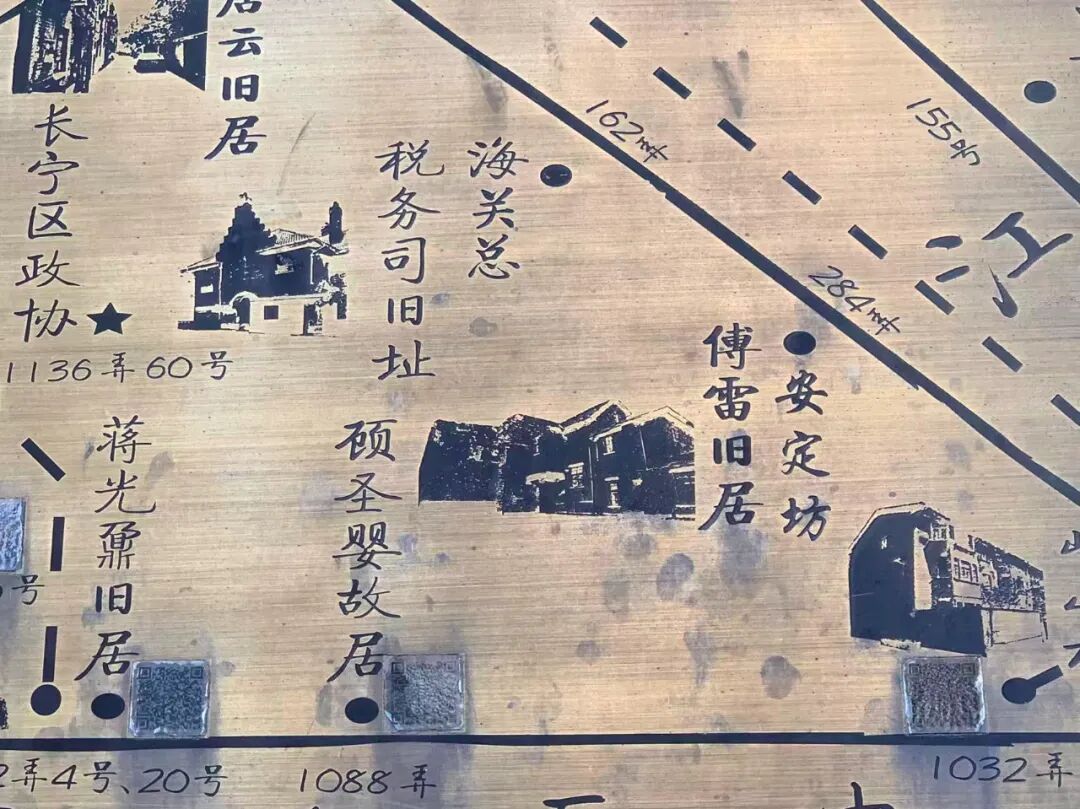 云旧居
长宁区政协
1136弄60号
税务司旧址
海关总
162弄
155号
284弄
江
傅雷旧居
安定坊
蒋光鼐旧居
顾圣婴故居
号
弄4号、20号
1088弄
1032弄